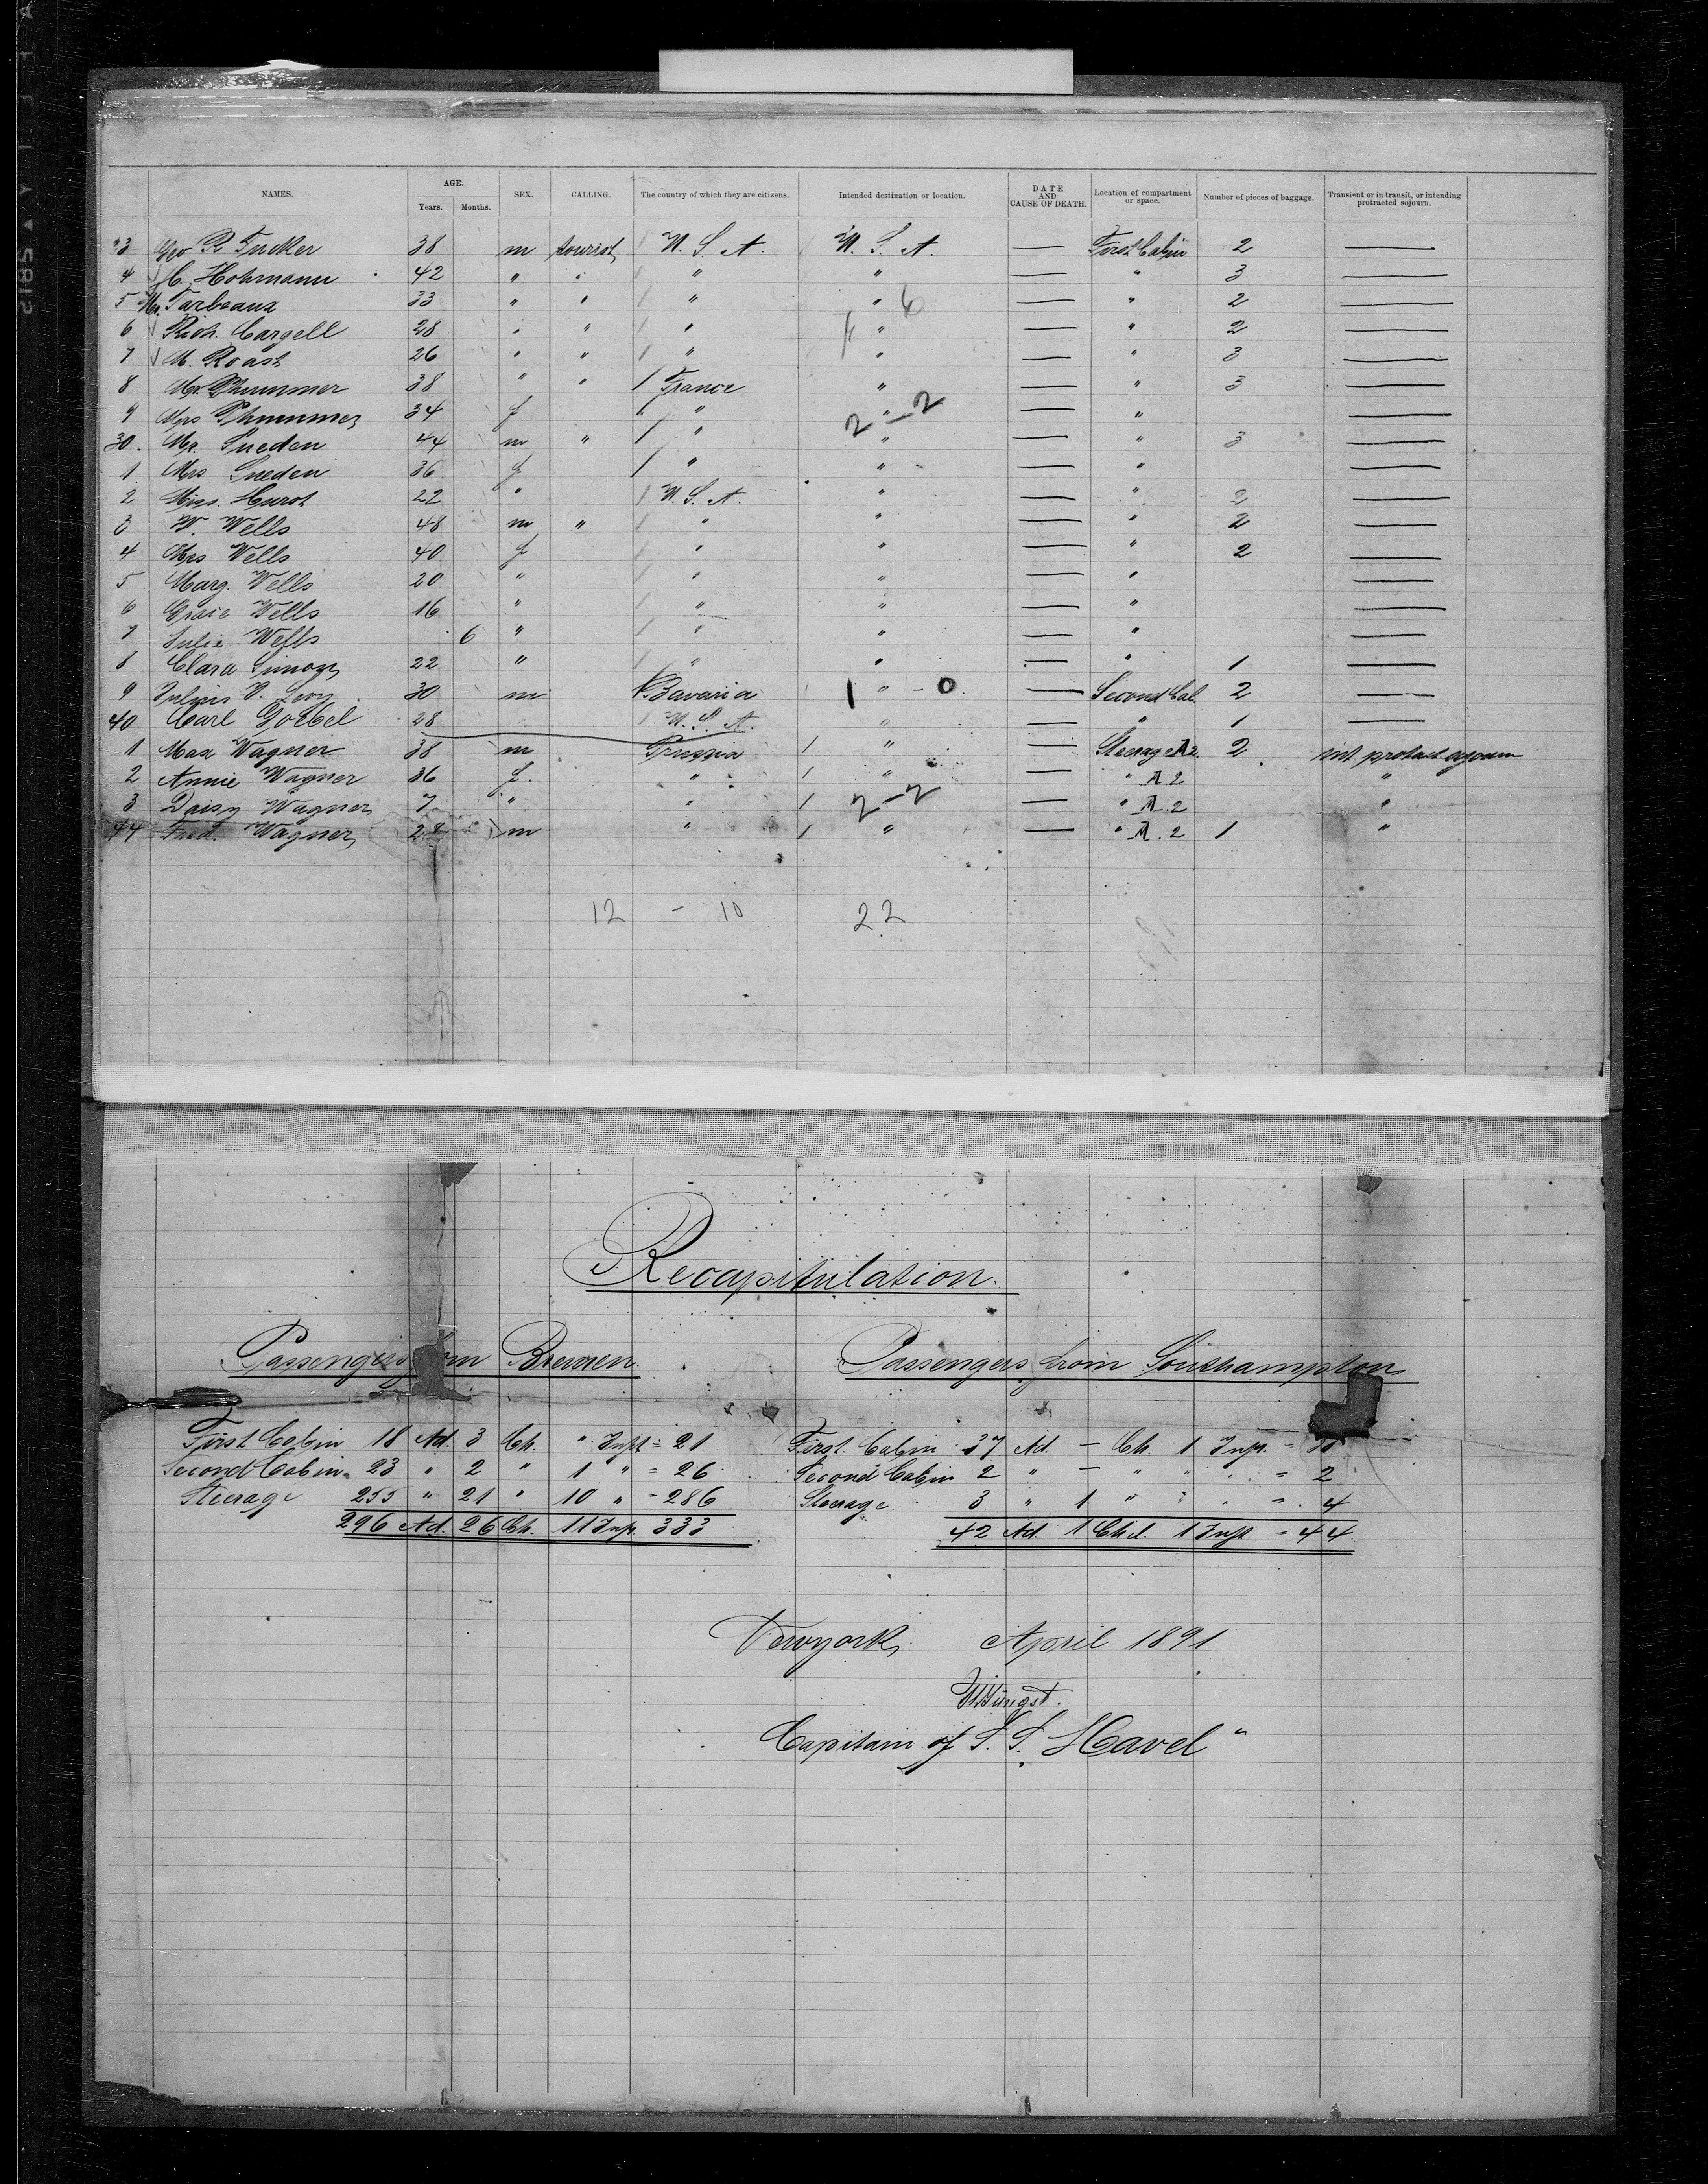 NAMES. AGE. Years. Months. SEX. CALLING. The country of which they are citizens. Intended destination or location. DATE AND CAUSE OF DEATH. Location of compartment or space. Number of pieces of baggage. Transient or in transit, or intending protracted sojourn.
23 Geo R. Tucker 38 m tourist 1 U. S. A. U. S. A. — First Cabin 2 —
4 C. Hohmann 42 " " 1 " " — " 3 —
5 Mr. Tarbeaux 33 " " 1 " " 6 — " 2 —
6 Rich. Cargell 28 " " 1 " " — " 2 —
7 M. Roast 26 " " 1 " " — " 3 —
8 Mr. Plummer 38 " " 1 France " — " 3 —
9 Mrs Plummer 34 f " " " 2-2 — " —
30. Mr. Sueden 44 m " 1 " " — " 3 —
1 Mrs Sueden 36 f 1 " " — " —
2 Miss. Hurst 22 " 1 U. S. A. " — " 2 —
3 W. Wells 48 m " 1 " " — " 2 —
4 Mrs Wells 40 f 1 " " — " 2 —
5 Marg. Wells 20 " 1 " " — " —
6 Grace Wells 16 " 1 " " — " —
7 Julie Wells 6 " 1 " " — " —
8 Clara Simon 22 " 1 " " — " 1 —
9 Julius V. Levy 30 m 1 Bavaria 1 " - 0 — Second Cab. 2 —
40 Carl Goebel 28 1 U. S. A. " — " 1 —
1 Max Wagner 38 m Prussia 1 " — Steerage A 2 2 int. protract. sojourn
2 Annie Wagner 36 f. " 1 " — " A 2 "
3 Daisy Wagner 7 " " 1 2-2 — " A. 2 "
44 Fred. Wagner 28 m " 1 " — " A. 2 1 "
12 - 10 22
Recapitulation.
Passengers from Bremen.
First Cabin 18 Ad. 3 Ch. " Inft = 21
Second Cabin 23 " 2 " 1 " = 26
Steerage 255 " 21 " 10 " = 286
296 Ad. 26 Ch. 11 Inf. 333
Passengers from Southampton
First Cabin 37 Ad. — Ch. 1 Inf. = 38
Second Cabin 2 " — " " " = 2
Steerage 3 " 1 " " " = 4
42 Ad. 1 Chd. 1 Inft = 44
Newyork, April 1891
Jüngst.
Capitain of S. S. „Havel"